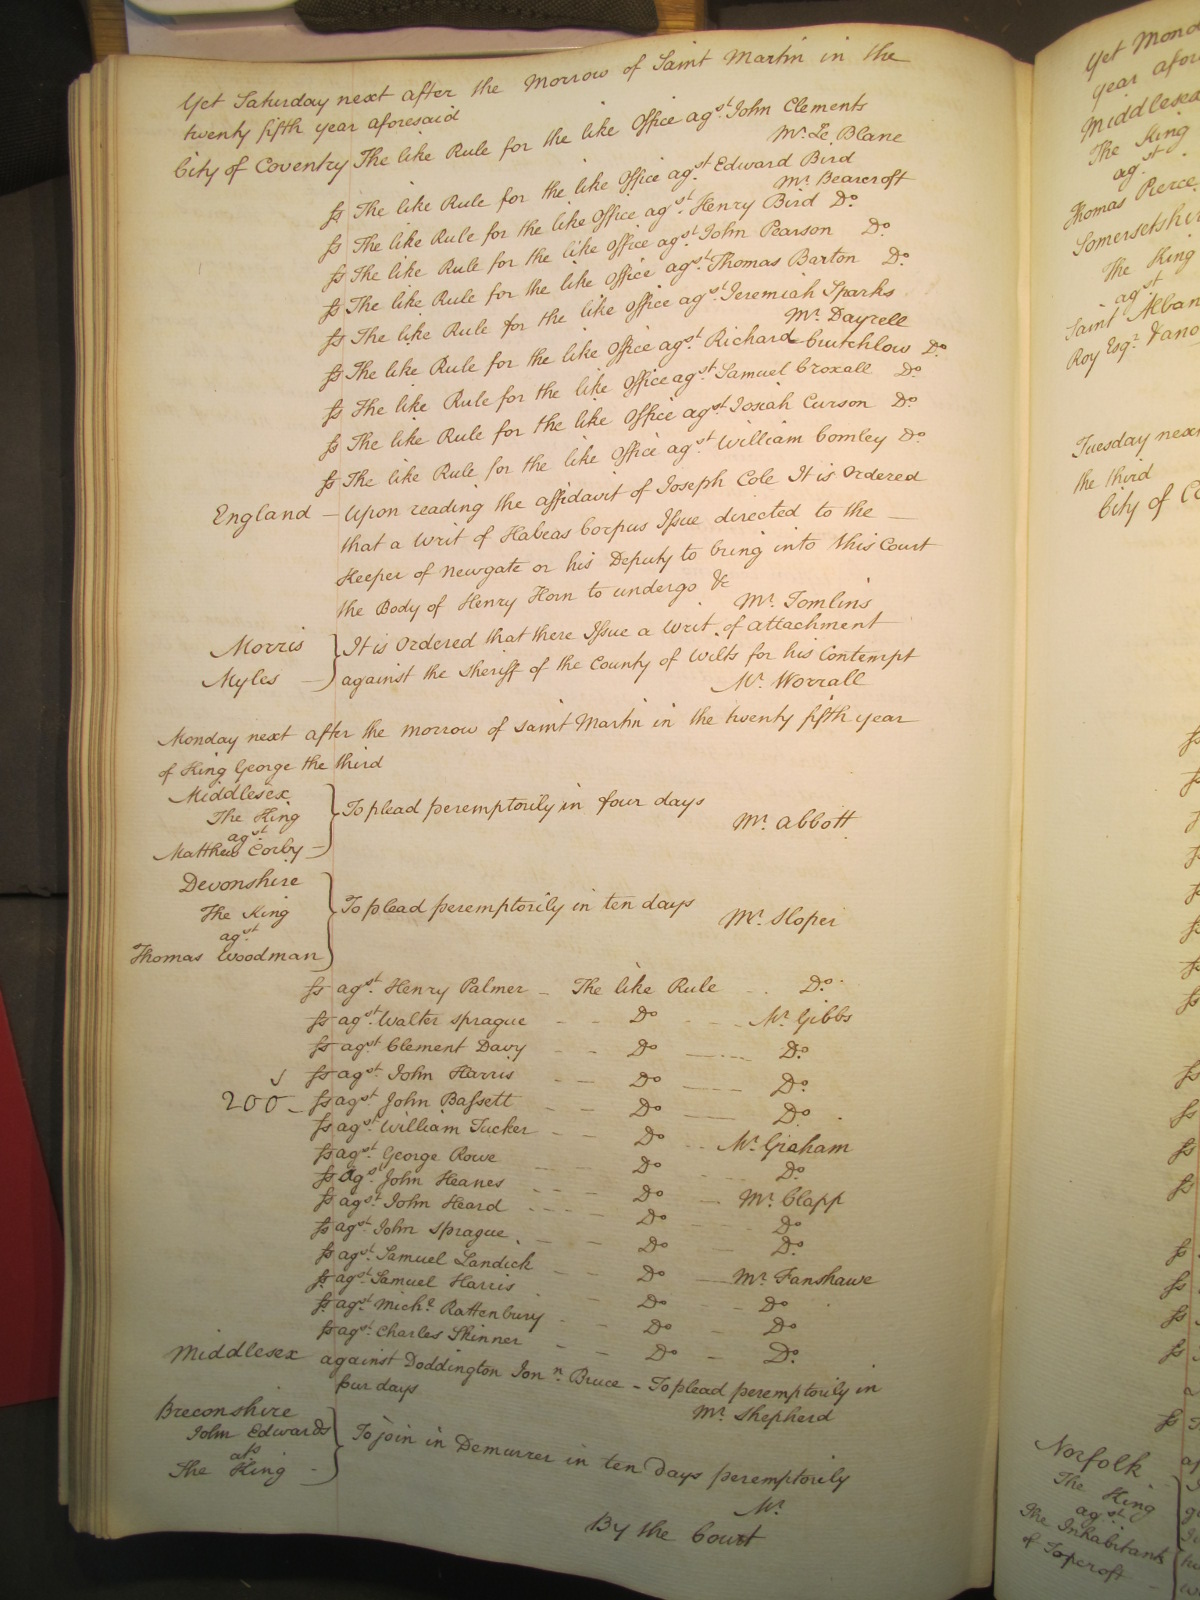 Yet Saturday next after the Morrow of Saint Martin in the
twenty fifth year aforesaid
City of Coventry The like Rule for the like Office agst. John Clements
Mr. Le Blane
ss The like Rule for the like Office agst. Edward Bird
Mr. Bearcroft
ss The like Rule for the like Office agst. Henry Bird Do.
ss The like Rule for the like Office agst. John Pearson Do.
ss The like Rule for the like Office agst. Thomas Barton Do.
ss The like Rule for the like Office agst. Jeremiah Sparks
Mr. Dayrell
ss The like Rule for the like Office agst. Richard Crutchlow Do.
ss The like Rule for the like Office agst. Samuel Croxall Do.
ss The like Rule for the like Office agst. Josiah Curson Do.
ss The like Rule for the like Office agst. William Comley Do.
England – Upon reading the affidavit of Joseph Cole It is Ordered
that a Writ of Habeas Corpus Issue directed to the —
Keeper of Newgate or his Deputy to bring into this Court
the Body of Henry Horn to undergo &c
Mr. Tomlins
Morris } It is Ordered that there Issue a Writ of attachment
Myles – against the Sheriff of the County of Wilts for his Contempt
Mr. Worrall
Monday next after the morrow of Saint Martin in the twenty fifth year
of King George the third
Middlesex
The King
agst.
Matthew Corby – } To plead peremptorily in four days
Mr. Abbott
Devonshire
The King
agst.
Thomas Woodman } To plead peremptorily in ten days
Mr. Sloper
ss agst. Henry Palmer – The like Rule Do.
ss agst. Walter Sprague – – Do – – Mr. Gibbs
ss agst. Clement Davy – – Do – – Do.
ss agst. John Harris – – Do – Do.
200 – ss agst. John Bassett – – Do – Do.
ss agst. William Tucker – – Do – Mr. Graham
ss agst. George Rowe – – Do – Do.
ss agst. John Heanes – – Do – Mr. Clapp
ss agst. John Heard – – Do – Do
ss agst. John Sprague – – Do – Do.
ss agst. Samuel Landick – – Do – Mr. Fanshawe
ss agst. Samuel Harris – – Do – Do
ss agst. Michl. Rattenbury – Do – Do
ss agst. Charles Skinner – – Do – Do.
Middlesex against Doddington Jonn. Bruce – To plead peremptorily in
four days
Mr. Shepherd
Breconshire
John Edwards
ats
The King – } To join in Demurrer in ten days peremptorily
Mr.
By the Court
Yet Mond
year afor
Middlesex
The King
agst.
Thomas Pierce
Somersetshi
The King
agst.
Saint Alban
Roy Esqr. & ano
Tuesday nex
the third
City of Co
Norfolk
The King
agst.
The Inhabitants
of Topcroft –